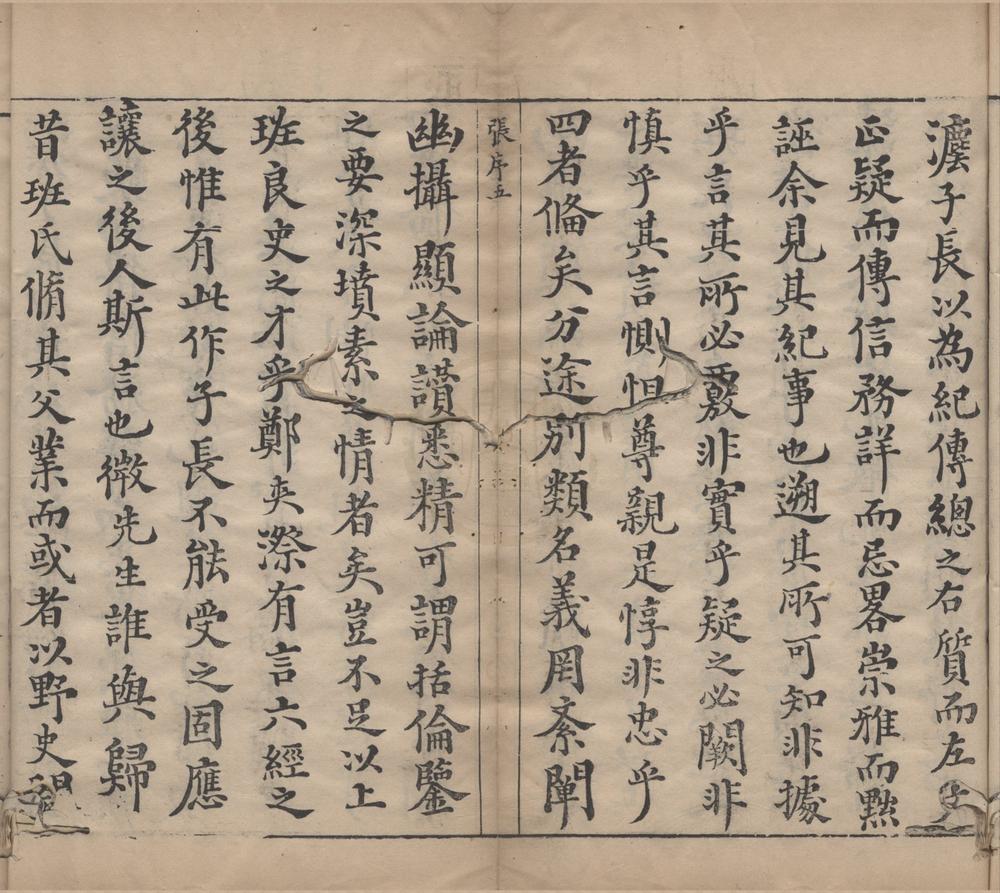 瀀子長以為紀傳總之右質而左
正疑而傳信務詳而忌畧崇雅而黙
誣余見其紀事也遡其所可知非據
乎言其所必覈非實乎疑之必闕非
慎乎其言惻怛尊親是惇非忠乎
四者俻矣分途別類名義罔紊闡
張序五
幽攝顯論讚悉精可謂括倫鑒
之要深墳素之情者矣豈不足以上
班良史之才乎鄭夾漈有言六經之
後惟有此作子長不能受之固應
讓之後人斯言也微先生誰與歸
昔班氏脩其父業而或者以野史